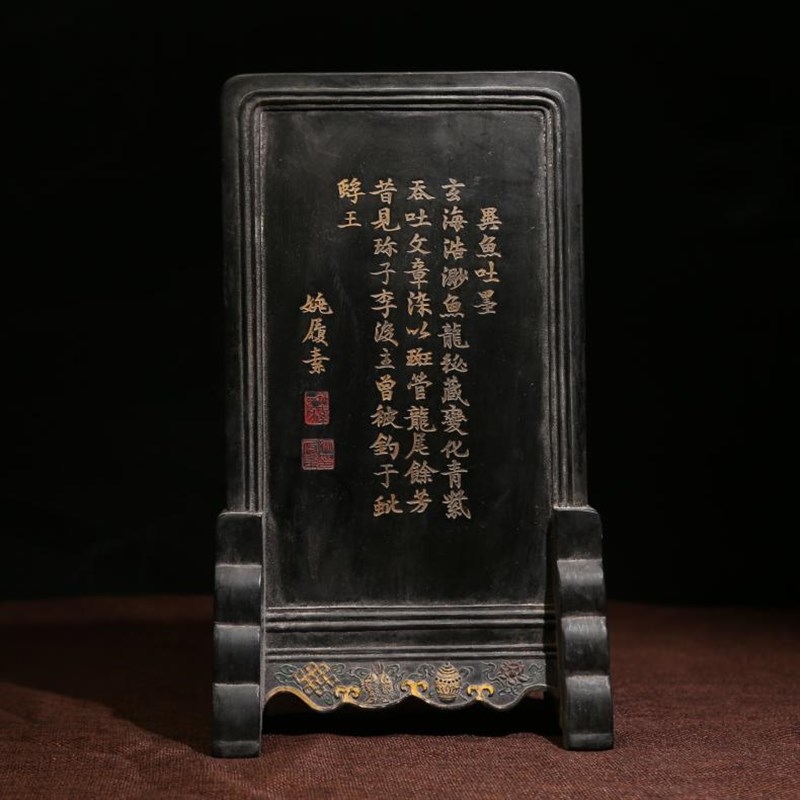 異魚吐墨
玄海浩渺魚龍秘藏變化青紫
吞吐文章染以斑管龍尾餘芳
昔見子李後主曾被釣于蚍
王
姚履素